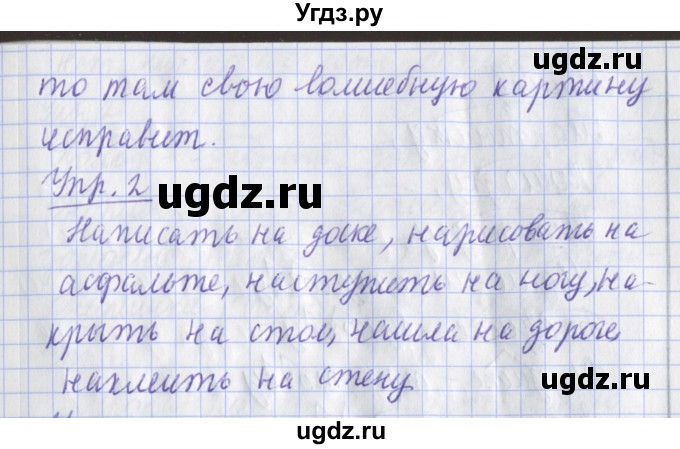 Угдз.ру
ugdz.ru
то там свою волшебную картину
исправит.
Упр. 2
ugdz.ru
ugdz.ru
Написать на доске, нарисовать на
асфальте, наступить на ногу, на-
крыть на стол, нашла на дороге,
наклеить на стену
ugdz.ru
ugdz.ru